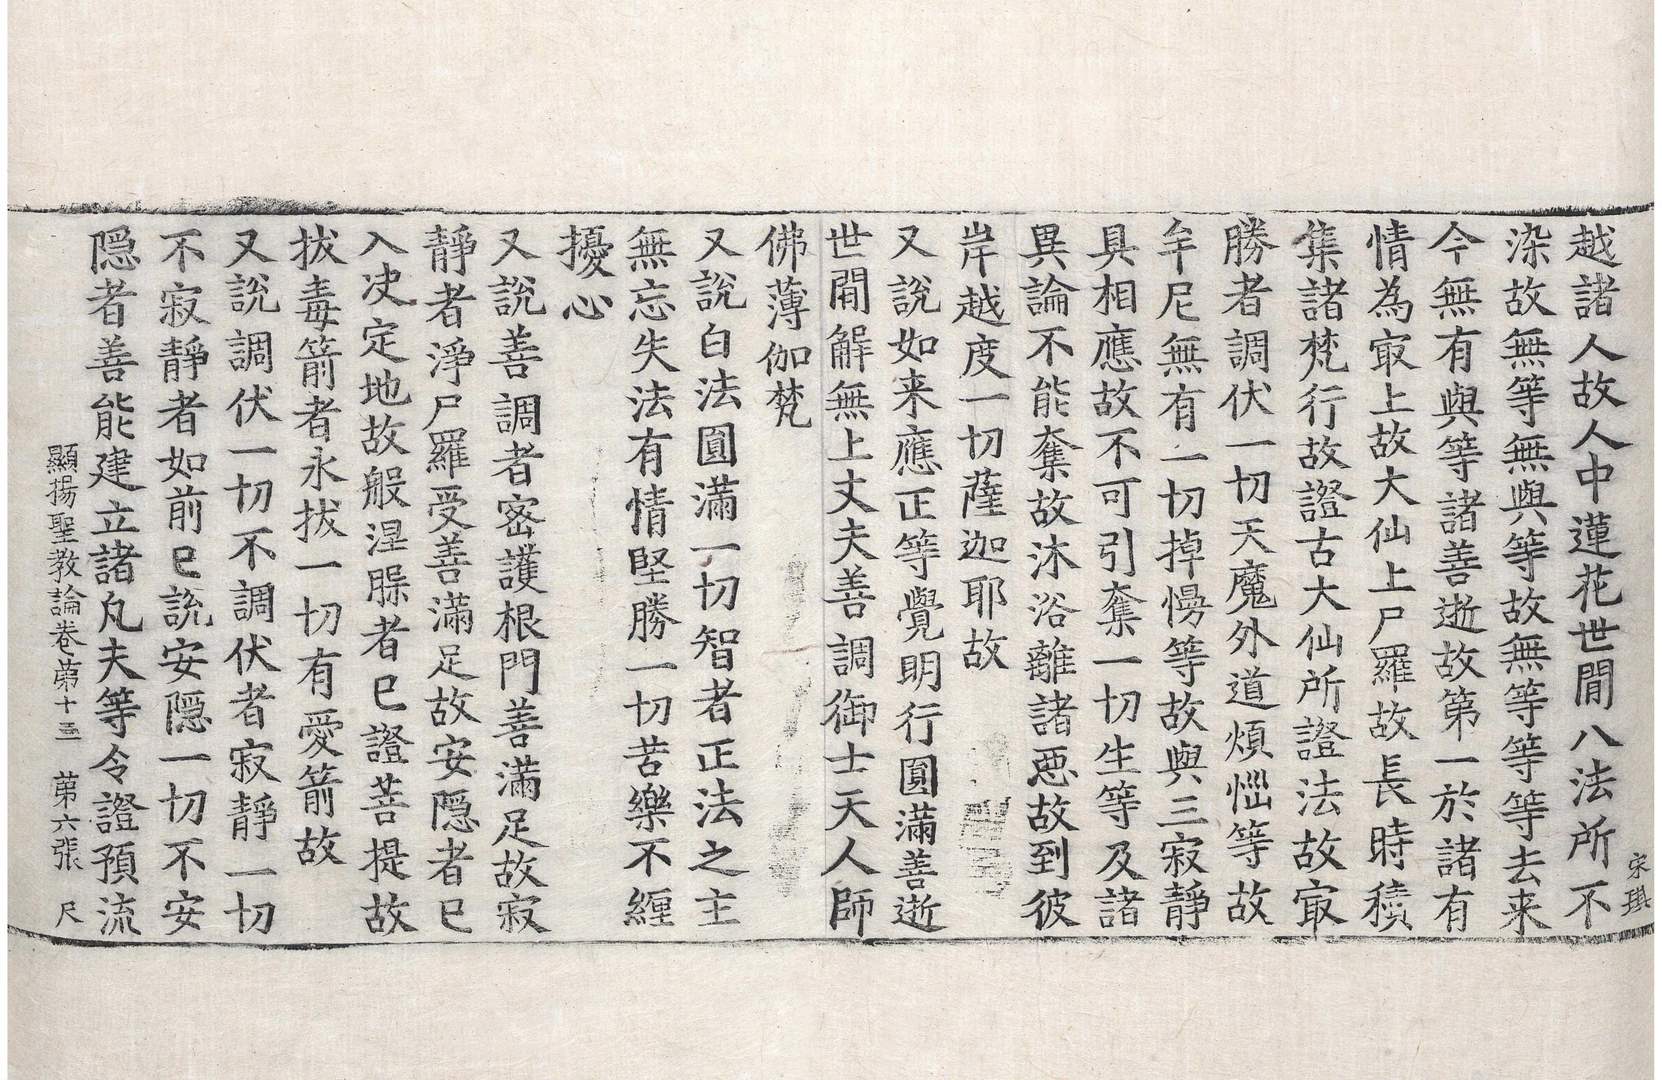 宋琪
越諸人故人中蓮花世閒八法所不
染故無等無與等故無等等等去来
今無有與等諸善逝故第一於諸有
情為㝡上故大仙上尸羅故長時積
集諸梵行故證古大仙所證法故㝡
勝者調伏一切天魔外道煩惱等故
牟尼無有一切掉慢等故與三寂靜
具相應故不可引奪一切生等及諸
異論不能奪故沐浴離諸惡故到彼
岸越度一切薩迦耶故
又說如来應正等覺明行圓滿善逝
世閒解無上丈夫善調御士天人師
佛薄伽梵
又說白法圓滿一切智者正法之主
無忘失法有情堅勝一切苦樂不纏
擾心
又說善調者密護根門善滿足故寂
靜者淨尸羅受善滿足故安隱者已
入决定地故般涅槃者已證菩提故
拔毒箭者永拔一切有愛箭故
又說調伏一切不調伏者寂靜一切
不寂靜者如前已說安隱一切不安
隱者善能建立諸凡夫等令證預流
顯揚聖教論卷第十三　第六張　尺